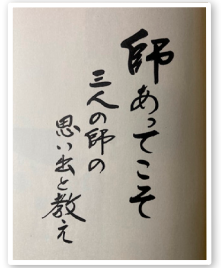 師あってこそ
三人の師の
思い出と教え